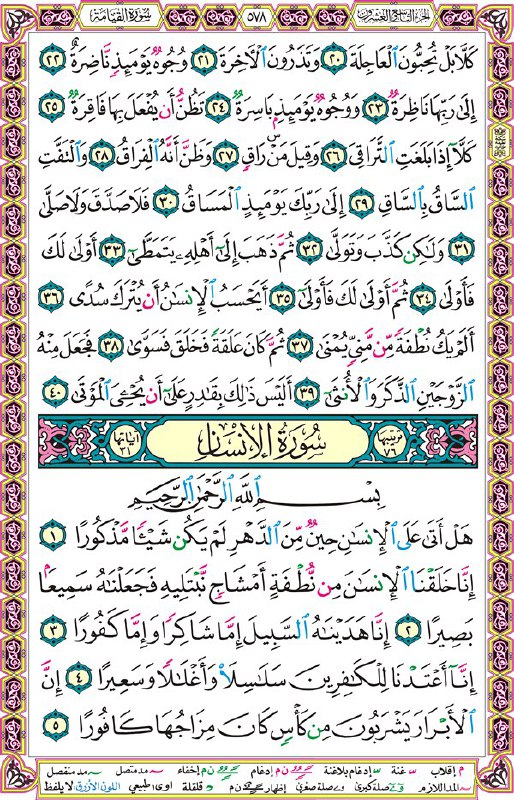 سُورَةُ القِيَامَة ٥٧٨ الجزء التاسع والعشرون
كَلَّا بَلْ تُحِبُّونَ ٱلْعَاجِلَةَ ٢٠ وَتَذَرُونَ ٱلْأَخِرَةَ ٢١ وُجُوهٌ يَوْمَئِذٍ نَّاضِرَةٌ ٢٢
إِلَىٰ رَبِّهَا نَاظِرَةٌ ٢٣ وَوُجُوهٌ يَوْمَئِذٍ بَاسِرَةٌ ٢٤ تَظُنُّ أَن يُفْعَلَ بِهَا فَاقِرَةٌ ٢٥
كَلَّآ إِذَا بَلَغَتِ ٱلتَّرَاقِيَ ٢٦ وَقِيلَ مَنْ ۜ رَاقٍ ٢٧ وَظَنَّ أَنَّهُ ٱلْفِرَاقُ ٢٨ وَٱلْتَفَّتِ
ٱلسَّاقُ بِٱلسَّاقِ ٢٩ إِلَىٰ رَبِّكَ يَوْمَئِذٍ ٱلْمَسَاقُ ٣٠ فَلَا صَدَّقَ وَلَا صَلَّىٰ
٣١ وَلَٰكِن كَذَّبَ وَتَوَلَّىٰ ٣٢ ثُمَّ ذَهَبَ إِلَىٰٓ أَهْلِهِۦ يَتَمَطَّىٰٓ ٣٣ أَوْلَىٰ لَكَ
فَأَوْلَىٰ ٣٤ ثُمَّ أَوْلَىٰ لَكَ فَأَوْلَىٰٓ ٣٥ أَيَحْسَبُ ٱلْإِنسَٰنُ أَن يُتْرَكَ سُدًى ٣٦
أَلَمْ يَكُ نُطْفَةً مِّن مَّنِىٍّ يُمْنَىٰ ٣٧ ثُمَّ كَانَ عَلَقَةً فَخَلَقَ فَسَوَّىٰ ٣٨ فَجَعَلَ مِنْهُ
ٱلزَّوْجَيْنِ ٱلذَّكَرَ وَٱلْأُنثَىٰٓ ٣٩ أَلَيْسَ ذَٰلِكَ بِقَٰدِرٍ عَلَىٰٓ أَن يُحْـِۧىَ ٱلْمَوْتَىٰ ٤٠
ترتيبها ٧٦ سُورَةُ الإِنسَان آياتها ٣١
بِسْمِ ٱللَّهِ ٱلرَّحْمَٰنِ ٱلرَّحِيمِ
هَلْ أَتَىٰ عَلَى ٱلْإِنسَٰنِ حِينٌ مِّنَ ٱلدَّهْرِ لَمْ يَكُن شَيْـًٔا مَّذْكُورًا ١
إِنَّا خَلَقْنَا ٱلْإِنسَٰنَ مِن نُّطْفَةٍ أَمْشَاجٍ نَّبْتَلِيهِ فَجَعَلْنَٰهُ سَمِيعًۢا
بَصِيرًا ٢ إِنَّا هَدَيْنَٰهُ ٱلسَّبِيلَ إِمَّا شَاكِرًا وَإِمَّا كَفُورًا ٣
إِنَّآ أَعْتَدْنَا لِلْكَٰفِرِينَ سَلَٰسِلَا۟ وَأَغْلَٰلًا وَسَعِيرًا ٤ إِنَّ
ٱلْأَبْرَارَ يَشْرَبُونَ مِن كَأْسٍ كَانَ مِزَاجُهَا كَافُورًا ٥
م إقلاب غنة إدغام بلاغنة ن م إدغام ن م إخفاء مد متصل مد منفصل
المد اللازم صلة كبرى صلة صغرى إظهار ن م قلقلة طبيعي اللون الأزرق لا يلفظ